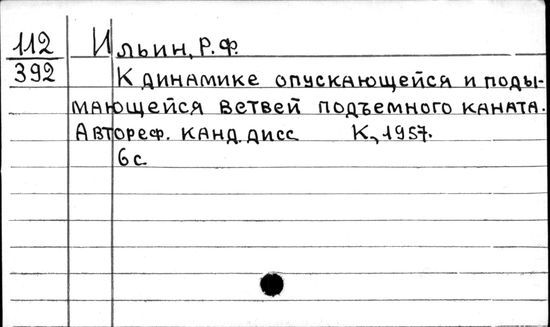 112 Ильин, Р.Ф.
392 К динамике опускающейся и поды-
мающейся ветвей подъемного каната.
Автореф. канд. дисс К., 1957.
6 с